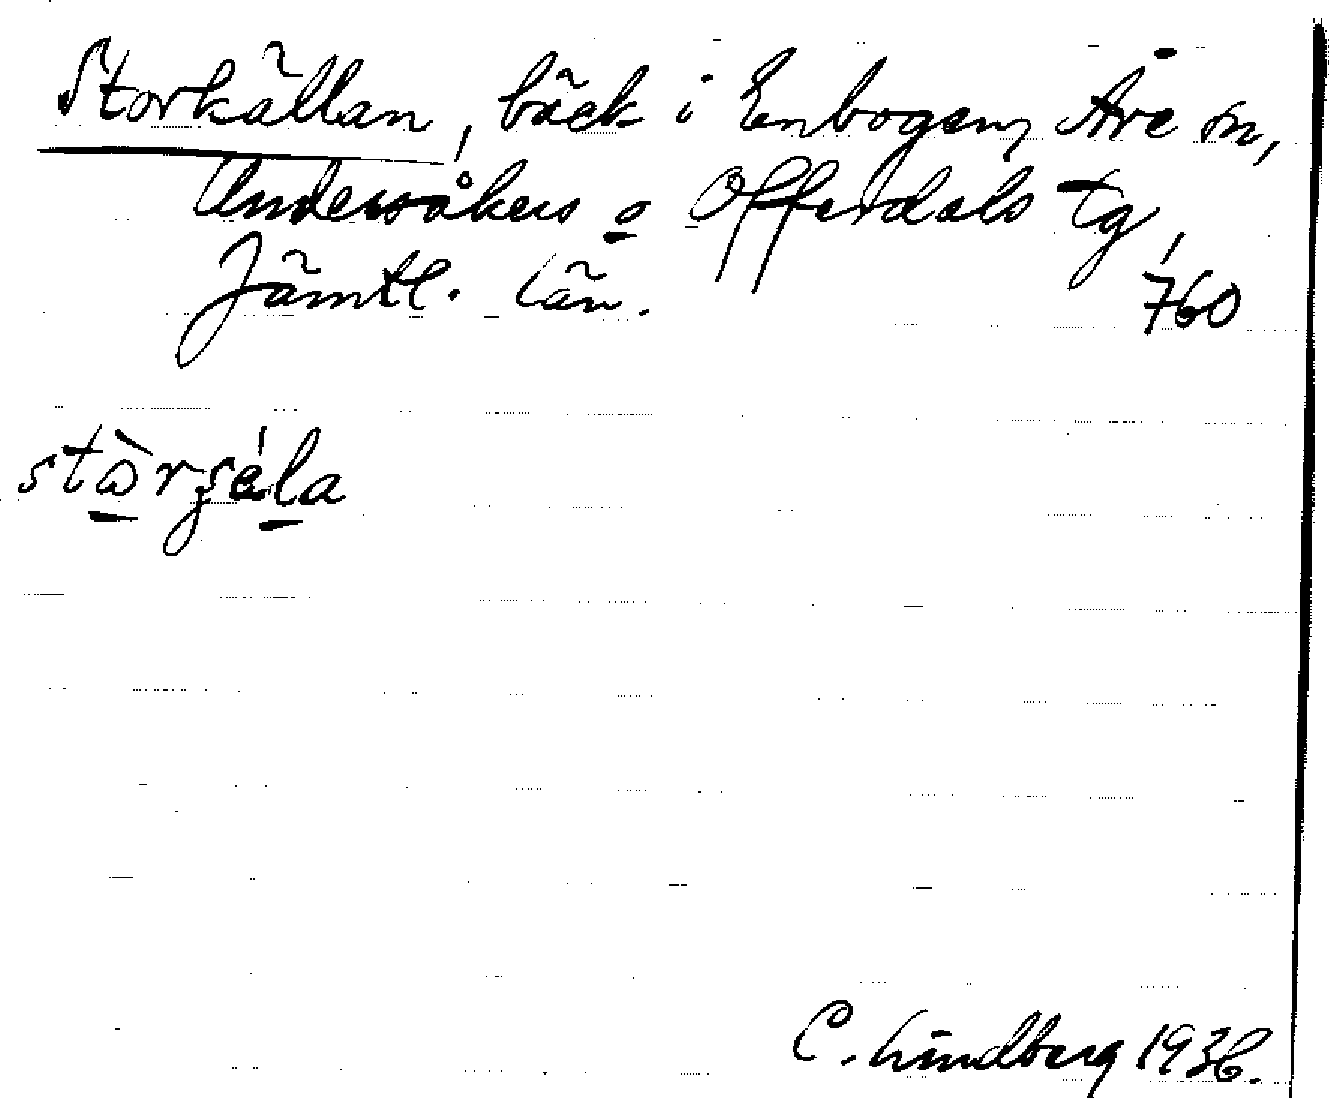 Storkällan, bäck i Enbogen, Åre sn,
Undersåkers o Offerdals tg,
Jämtl. län.
760
stòrʂéla
C. Lindberg 1936.